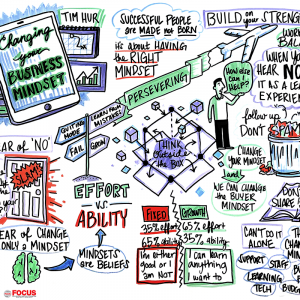 TIM HUR
Changing
your
BUSINESS
MINDSET
SUCCESSFUL PEOPLE
are MADE not BORN
it's about HAVING
the RIGHT
MINDSET
BUILD on your STRENG
WORK
BALA
WHEN YOU
HEAR NO
IT IS A LEA
EXPERIEN
How else
can I
help?
PERSEVERING
LEARN FROM
MISTAKES!
FAIL
GROW
THINK
Outside
the BOX
follow up
DON'T
CHANGE
YOUR MINDSET
and
WE CAN CHANGE
the BUYER
MINDSET
DON'
SHARE
EAR of 'NO'
SLAM!
EAR of CHANGE
ONLY a MINDSET
MINDSETS
are BELIEFS
EFFORT
VS.
ABILITY
FIXED
GROWTH
35% effort
65% effort
65% ability
35% ability
I'm either
good or I
am NOT
I can learn
anything
I want to
CAN'T do it
ALONE
THE
SUPPORT
STAFF
LEARNING
TECH
BUDG
FOCUS